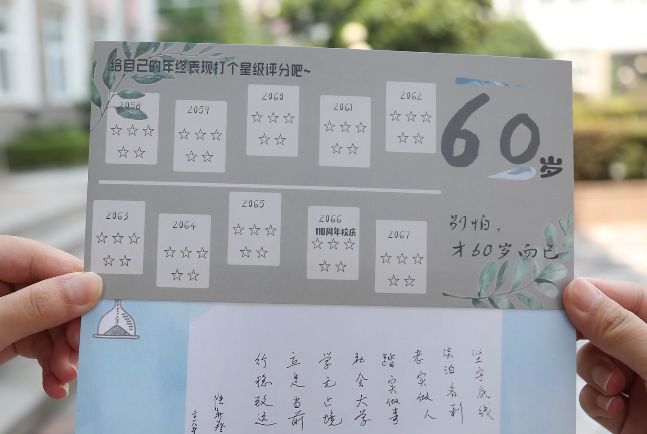 给自己的年终表现打个星级评分吧~
2058
2059
2060
2061
2062
60岁
2063
2064
2065
2066
110周年校庆
2067
别怕，
才60岁而已
坚守底线
淡泊名利
老实做人
踏实做事
社会大学
学无止境
立足当前
行稳致远